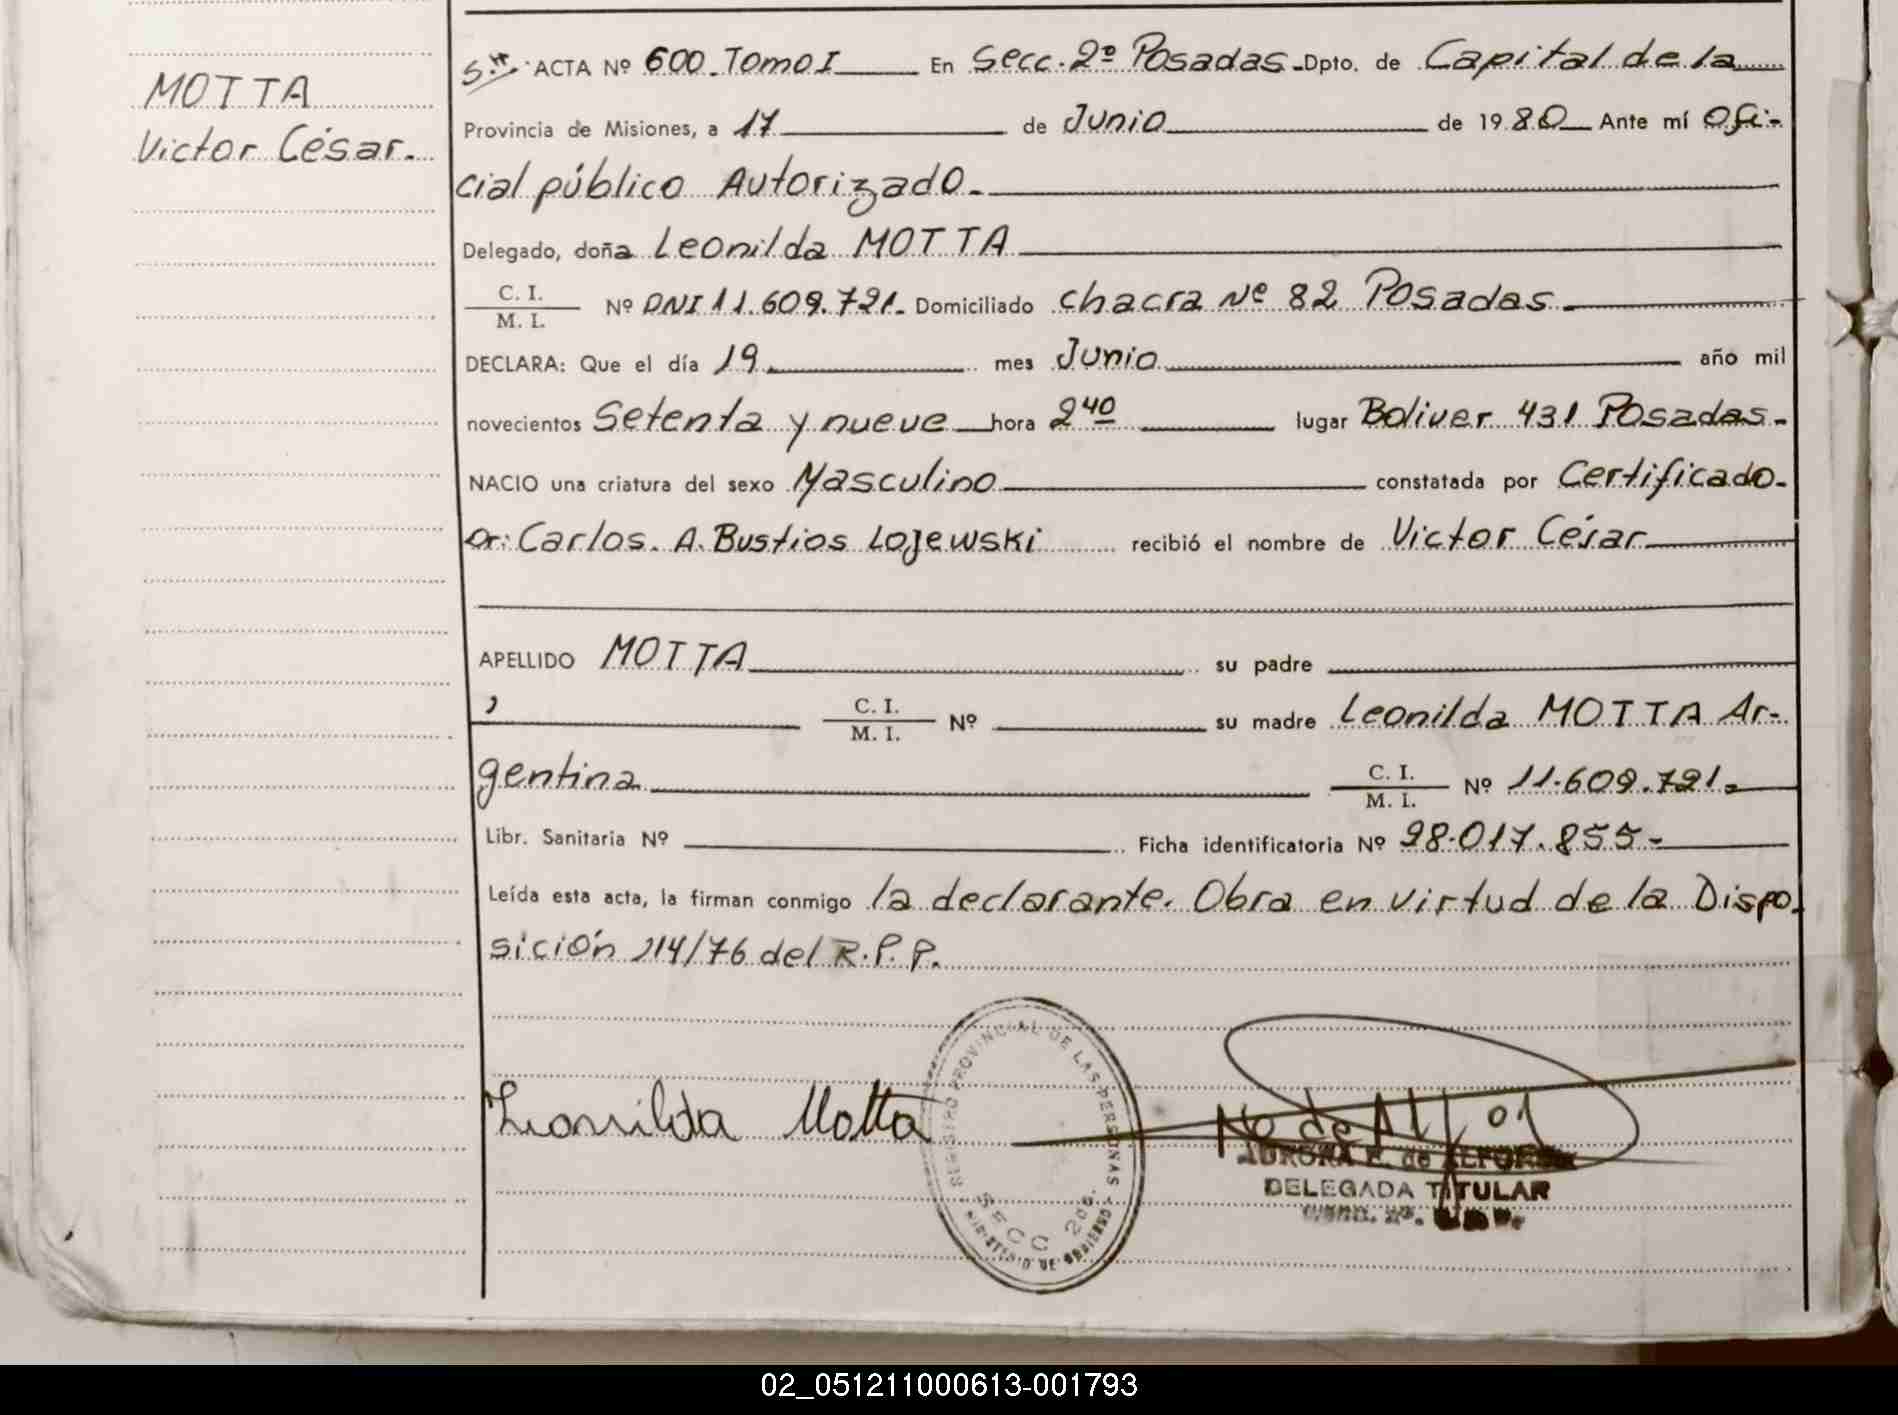 MOTTA
Victor César.
ACTA Nº 600. Tomo I En Secc. 2º Posadas. Dpto. de Capital de la
Provincia de Misiones, a 17 de Junio de 1980 Ante mí Ofi-
cial público Autorizado.
Delegado, doña Leonilda MOTTA
C. I.
M. I.
Nº DNI 11.609.721. Domiciliado Chacra Nº 82 Posadas.
DECLARA: Que el día 19 mes Junio año mil
novecientos Setenta y nueve hora 2 40 lugar Boliver 431 Posadas.
NACIO una criatura del sexo Masculino constatada por Certificado.
Dr: Carlos. A. Bustios Lojewski recibió el nombre de Victor César
APELLIDO MOTTA su padre
, C. I.
M. I.
Nº su madre Leonilda MOTTA Ar-
gentina C. I.
M. I.
Nº 11.609.721.
Libr. Sanitaria Nº Ficha identificatoria Nº 28.017.855-
Leída esta acta, la firman conmigo la declarante. Obra en virtud de la Dispo-
sición 114/76 del R.P.P.
Leonilda Motta
REGISTRO PROVINCIAL DE LAS PERSONAS
SECC. 2da.
MINISTERIO DE GOBIERNO
AURORA de
DELEGADA TITULAR
02_051211000613-001793